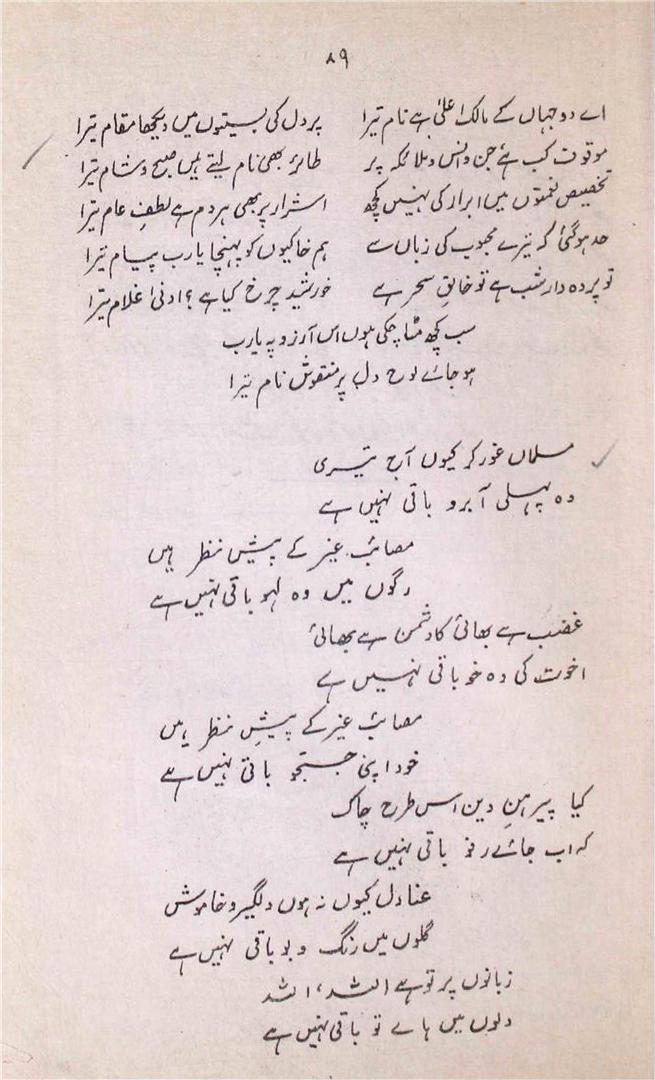 ۸۹
اے دو جہاں کے مالک اعلیٰ ہے نام تیرا پر دل کی بستیوں میں دیکھا مقام تیرا
موقوف کب ہے جن و انس و ملائکہ پر طائر بھی نام لیتے ہیں صبح و شام تیرا
تخصیص نعمتوں میں ابرار کی نہیں کچھ اشرار پر بھی ہر دم ہے لطفِ عام تیرا
حد ہو گئی کہ تیرے محبوب کی زباں سے ہم خاکیوں کو پہنچا یا رب پیام تیرا
تو پردہ دار شب ہے تو خالقِ سحر ہے خورشید چرخ کیا ہے؟ ادنیٰ غلام تیرا
سب کچھ مٹا چکی ہوں اس آرزو پہ یارب
ہو جائے لوح دل پر منقوش نام تیرا
مسلماں غور کر کیوں آج تیری
وہ پہلی آبرو باقی نہیں ہے
مصائب غیر کے پیش نظر ہیں
رگوں میں وہ لہو باقی نہیں ہے
غضب ہے بھائی کا دشمن ہے بھائی
اخوت کی وہ خو باقی نہیں ہے
مصائب غیر کے پیشِ نظر ہیں
خود اپنی جستجو باقی نہیں ہے
کیا پیرہنِ دین اس طرح چاک
کہ اب جائے رفو باقی نہیں ہے
عنادل کیوں نہ ہوں دلگیر و خاموش
گلوں میں رنگ و بو باقی نہیں ہے
زبانوں پر تو ہے اللہ، اللہ
دلوں میں ہائے تو باقی نہیں ہے